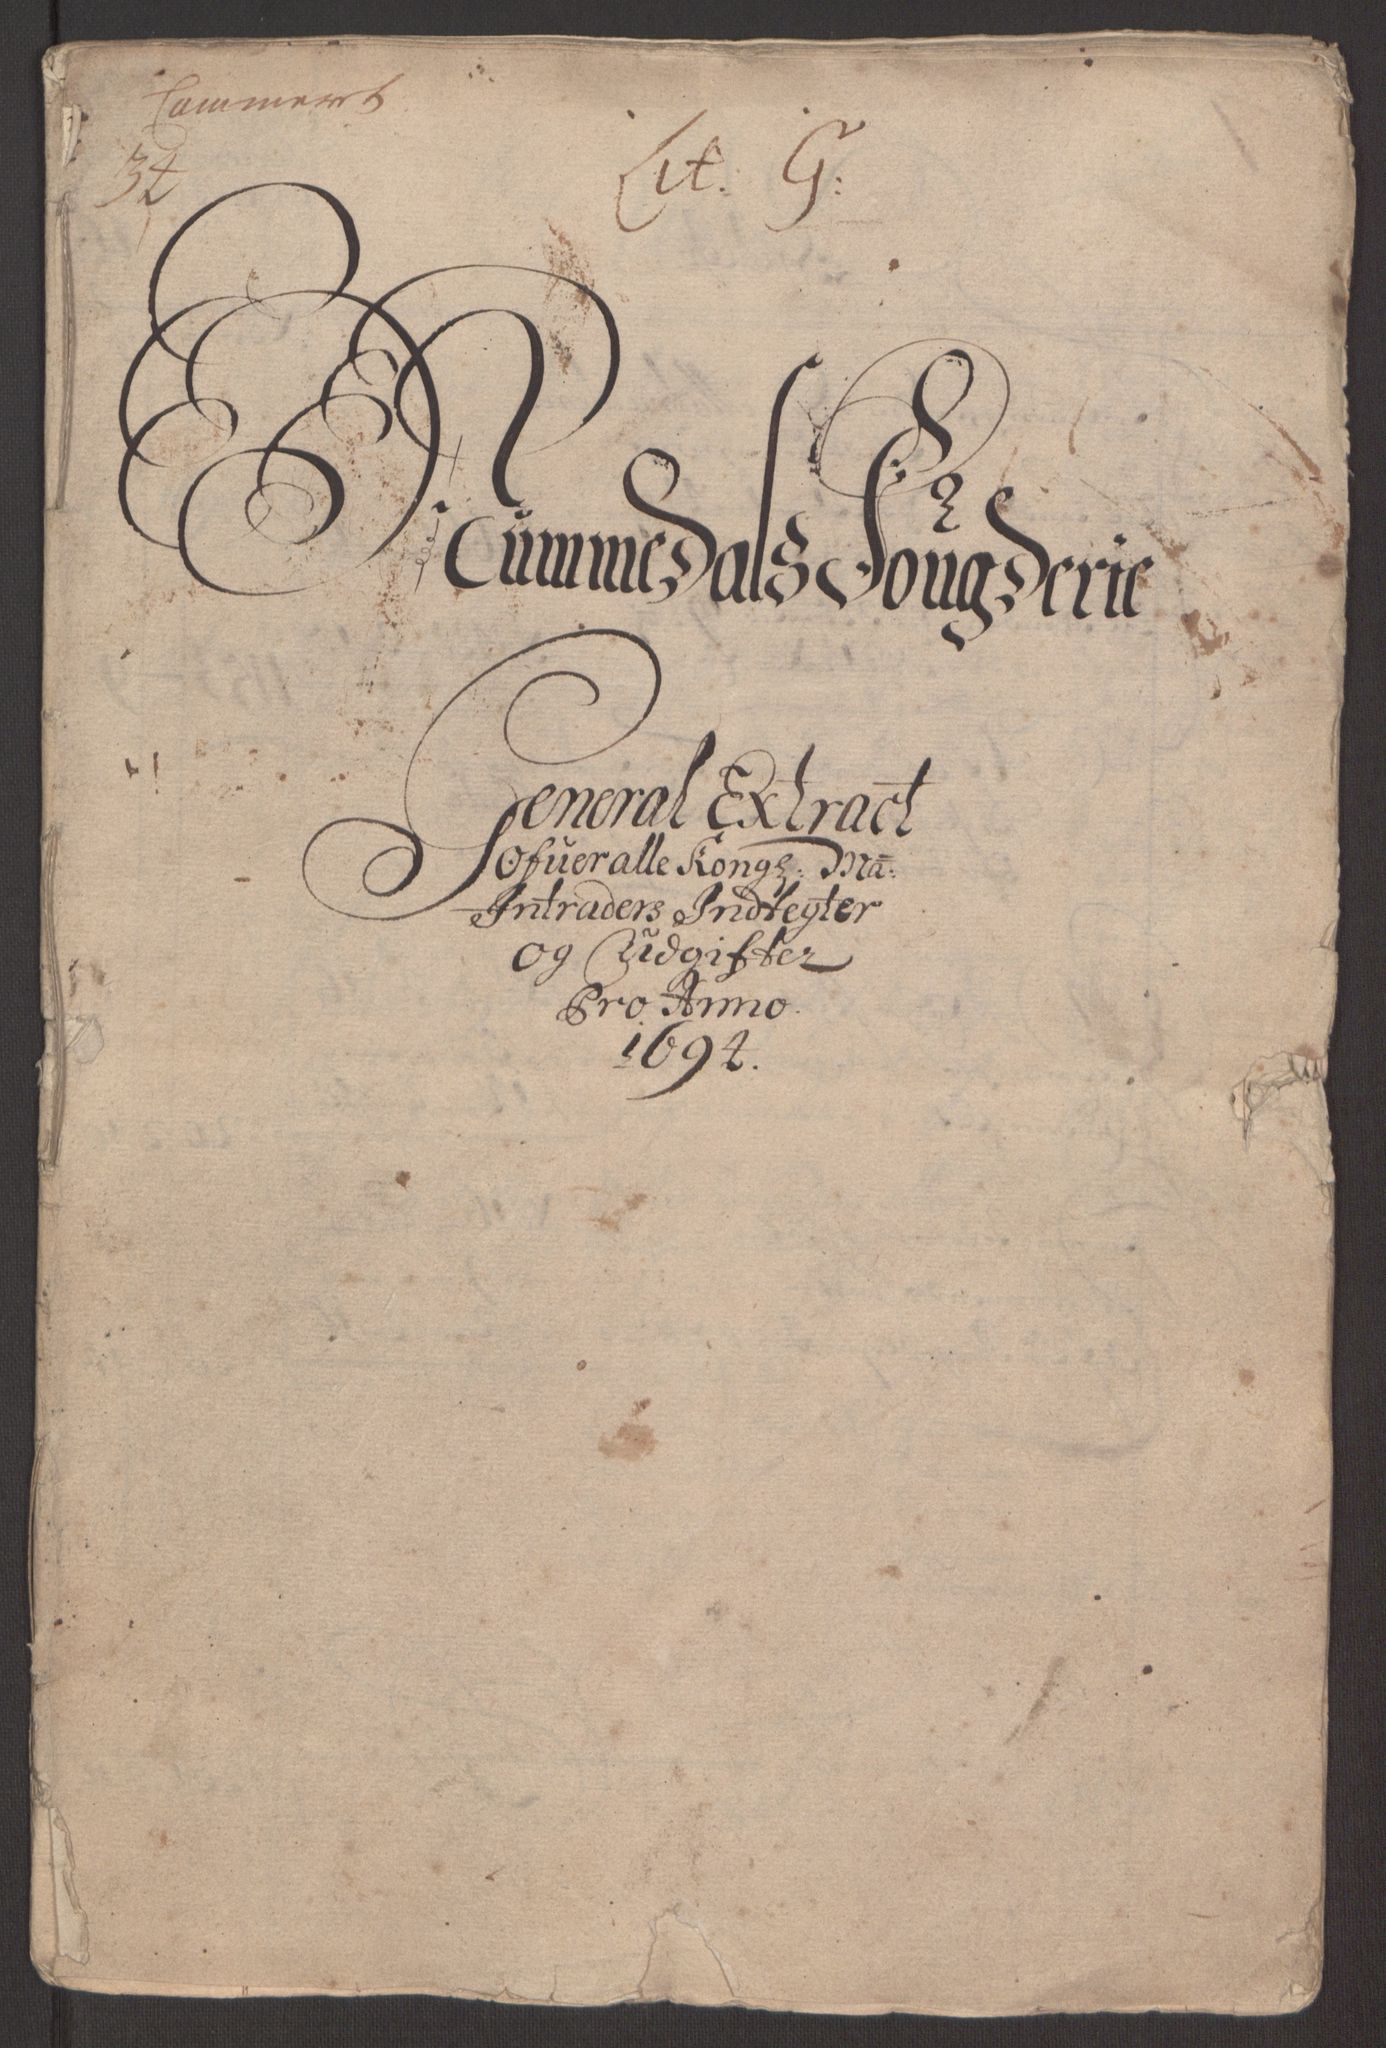 34
Lit. G:
Nummedals Fougderie
General Extract
Ofuer alle Kongs: Ma:
Intraders Indtegter
og Udgifter
Pro Anno.
1694.